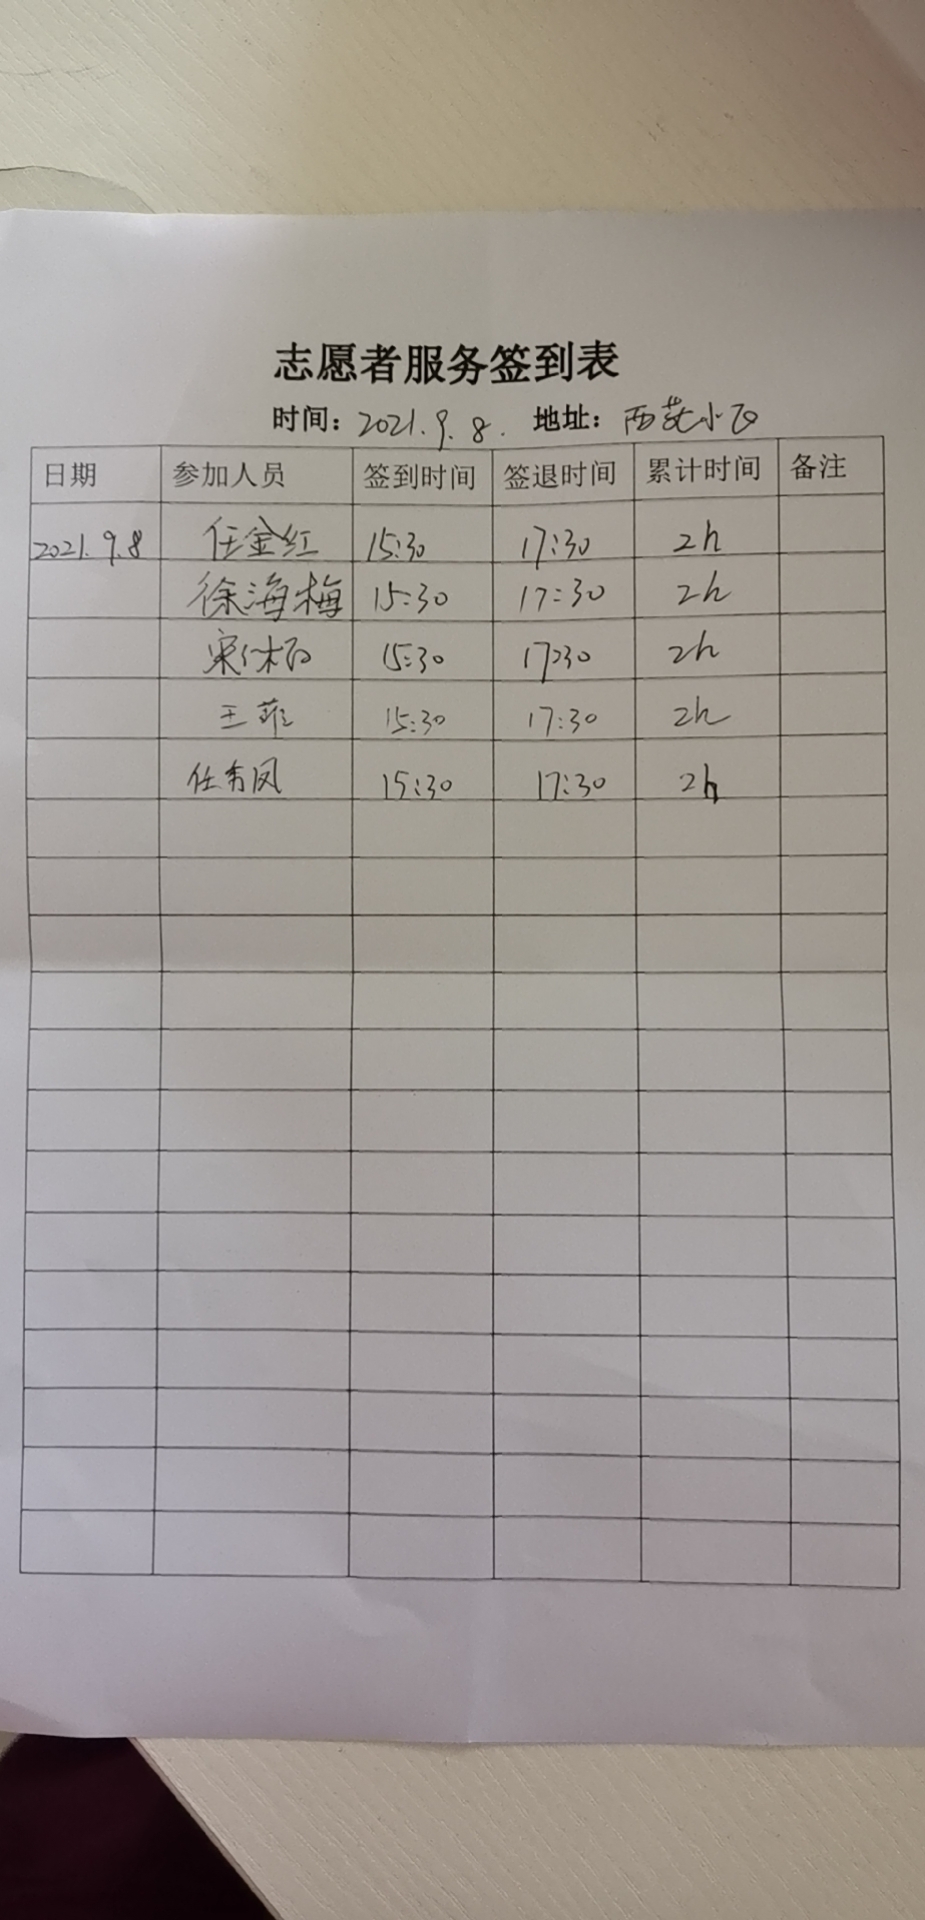 志愿者服务签到表
时间：2021.9.8. 地址：西苑小区
日期 参加人员 签到时间 签退时间 累计时间 备注
2021.9.8 任金红 15:30 17:30 2h
徐海梅 15:30 17:30 2h
宋 15:30 17:30 2h
王菲 15:30 17:30 2h
任秀凤 15:30 17:30 2h